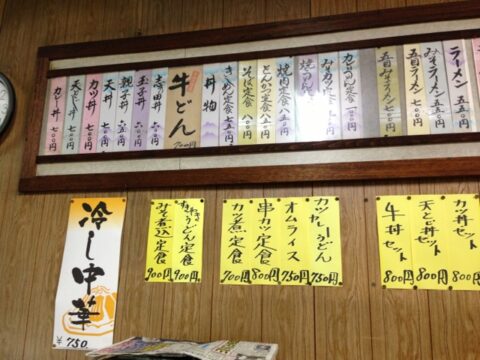 ラーメン 五五〇
みそラーメン
五目ラーメン 七〇〇
五目みそラーメン 七五〇
カレーうどん
焼うどん
焼肉定食 八〇〇
とんかつ定食 八〇〇
そば定食 八〇〇
きしめん定食 七五〇
丼物
牛どん 700円
志の田丼 六〇〇
玉子丼 六〇〇
親子丼 六五〇
天丼 七〇〇
カツ丼 七〇〇
天とじ丼 七〇〇
カレー丼 七〇〇
カツ丼セット 800円
天とじ丼セット 800円
牛丼セット 800円
カツカレーうどん 750円
オムライス 750円
串カツ定食 800円
カツ煮定食 900円
うどん定食 900円
みそ煮込定食 900円
冷し中華
¥750